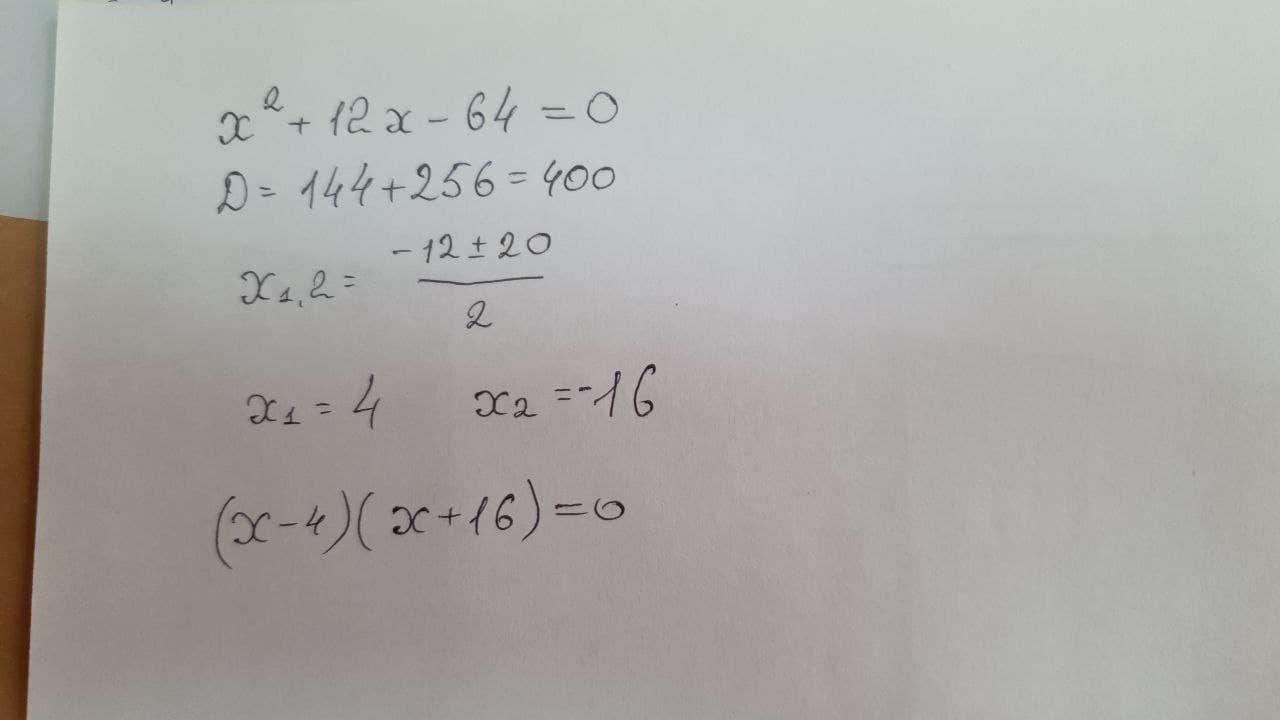 x² + 12x - 64 = 0
D = 144 + 256 = 400
x₁,₂ = (-12 ± 20)/2
x₁ = 4 x₂ = -16
(x-4)(x+16) = 0